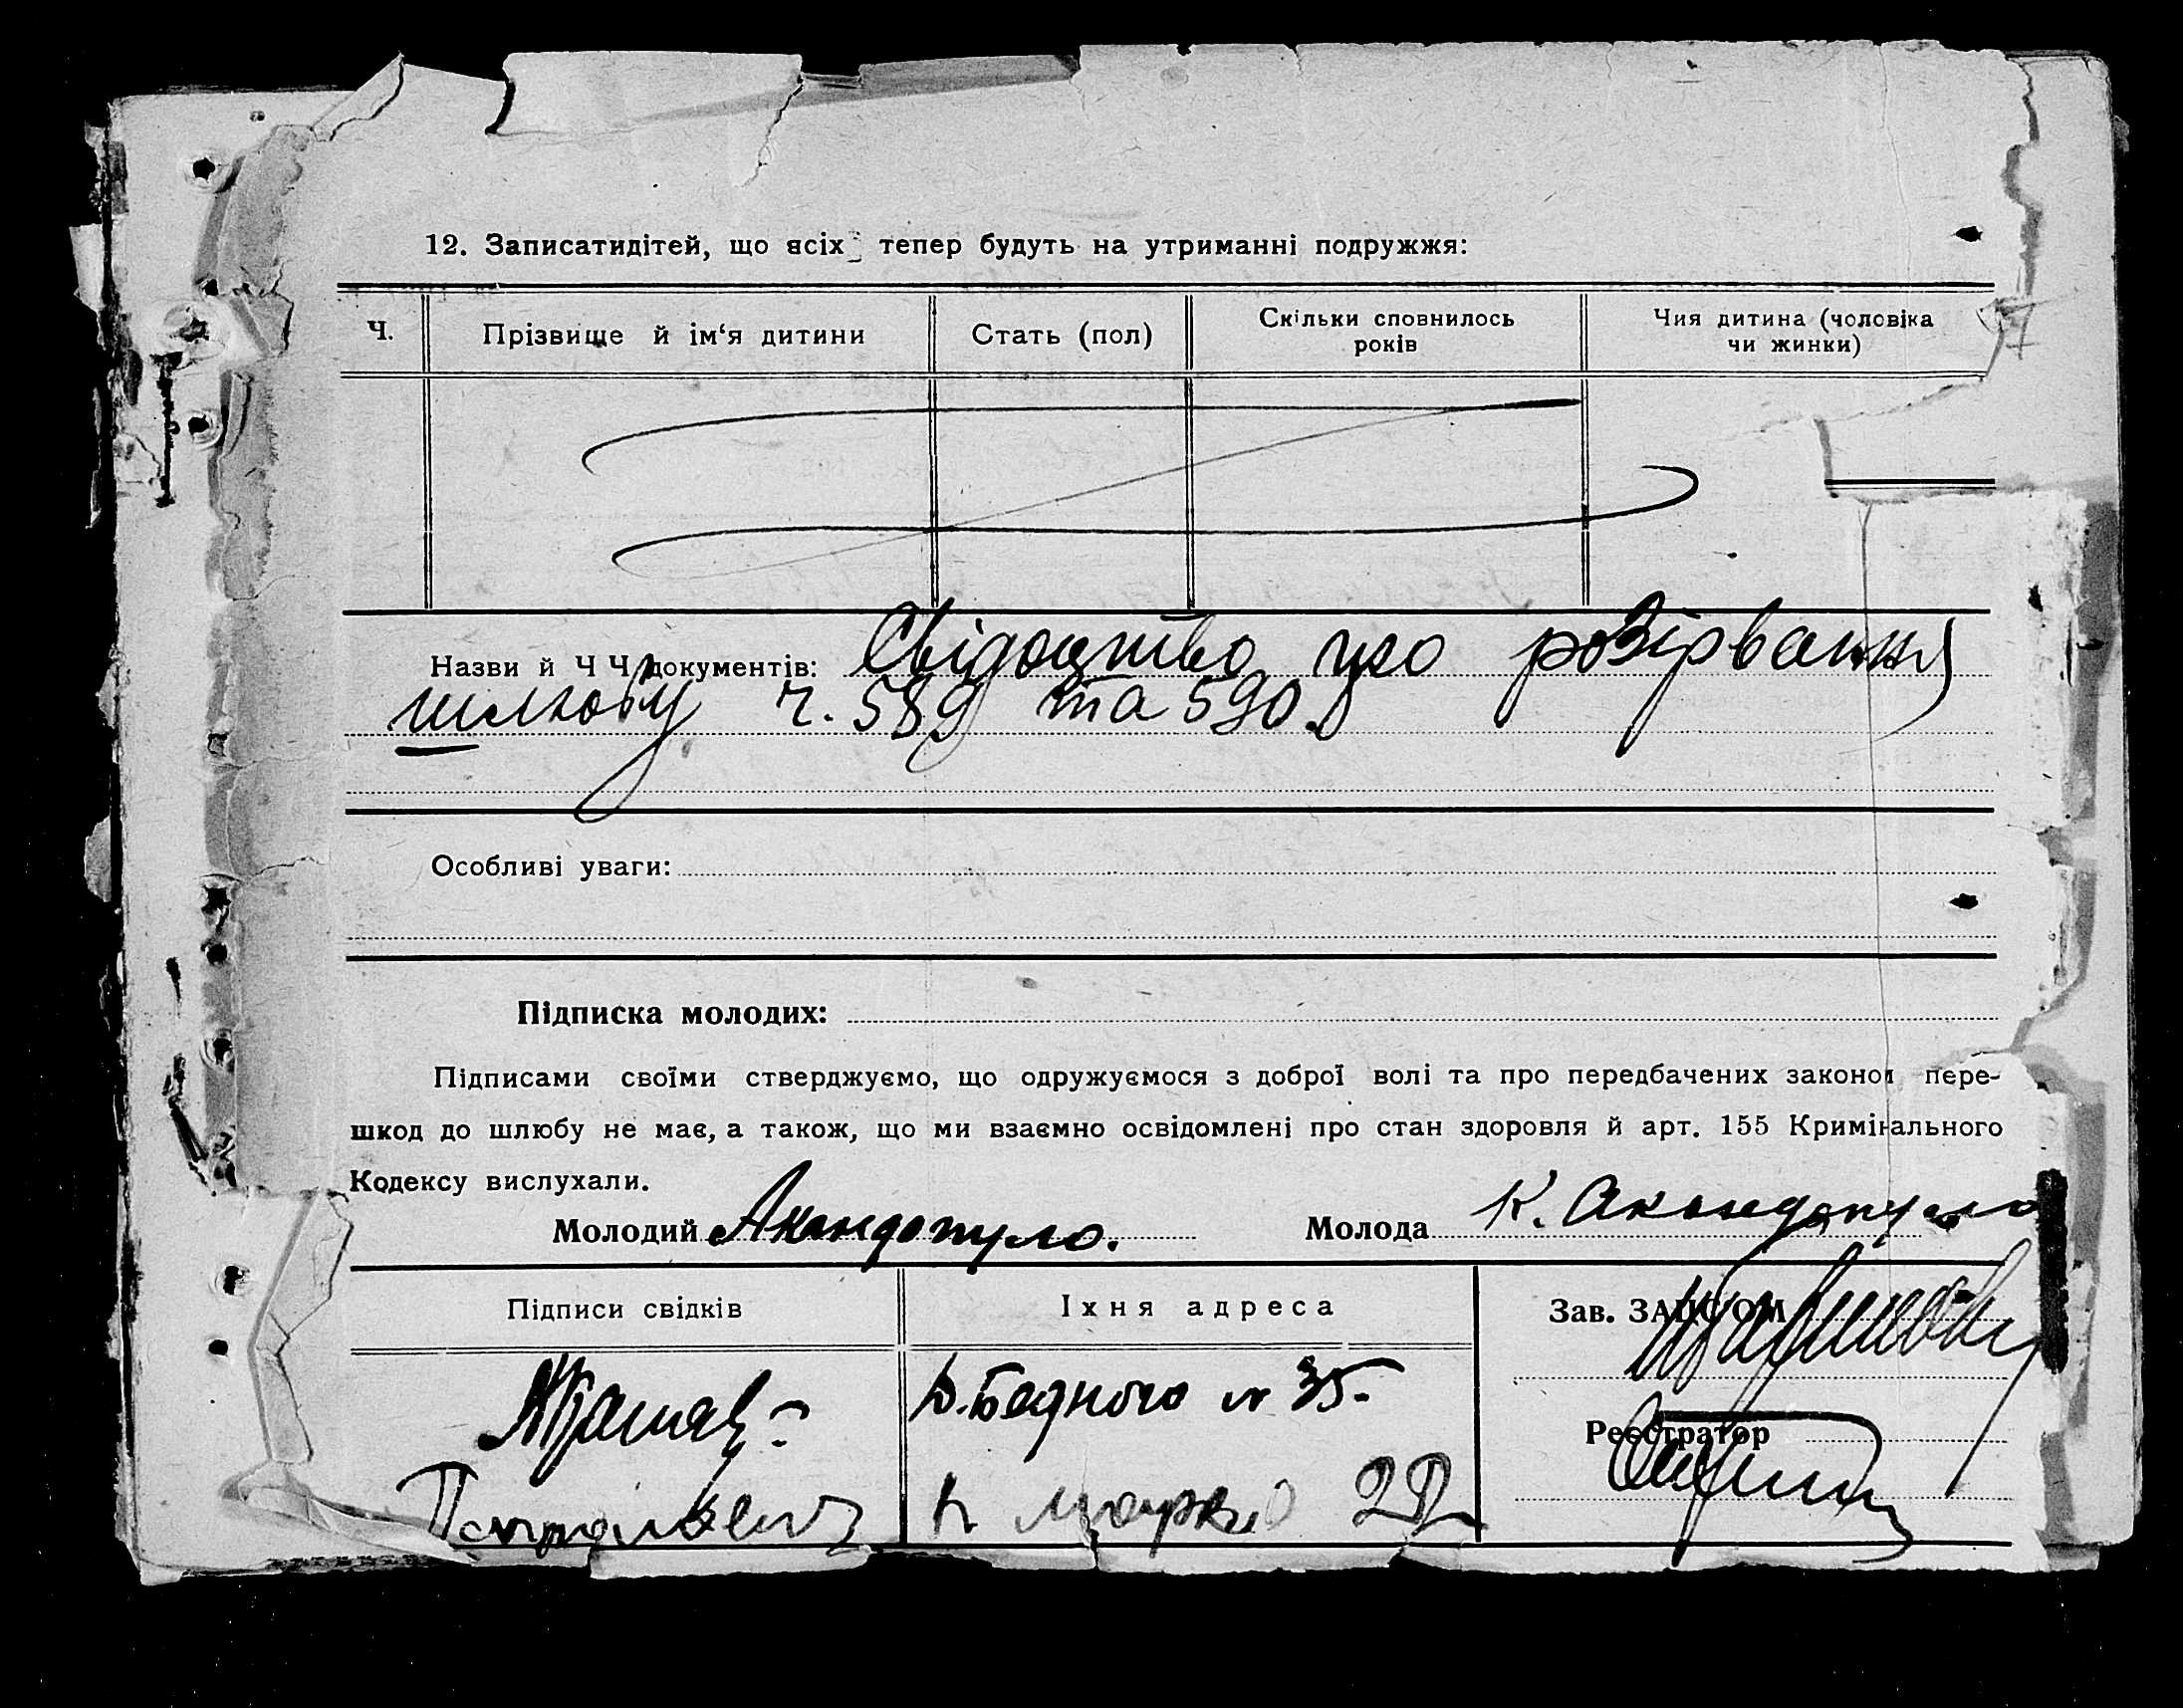 12. Записатидітей, що всіх тепер будуть на утриманні подружжя:
Ч.
Прізвище й ім‘я дитини
Стать (пол)
Скільки сповнилось
років
Чия дитина (чоловіка
чи жинки)
Назви й Ч Ч документів: Свідоцтво про розірвання
шлюбу ч. 589 та 590.
Особливі уваги:
Підписка молодих:
Підписами своїми стверджуємо, що одружуємося з доброї волі та про передбачених законом пере-
шкод до шлюбу не має, а також, що ми взаємно освідомлені про стан здоровля й арт. 155 Кримінального
Кодексу вислухали.
Молодий Акондопуло. Молода К. Акондопуло
Підписи свідків
Їхня адреса
Зав. ЗАЦС'ОМ
Д. Бедного № 35.
Реєстратор